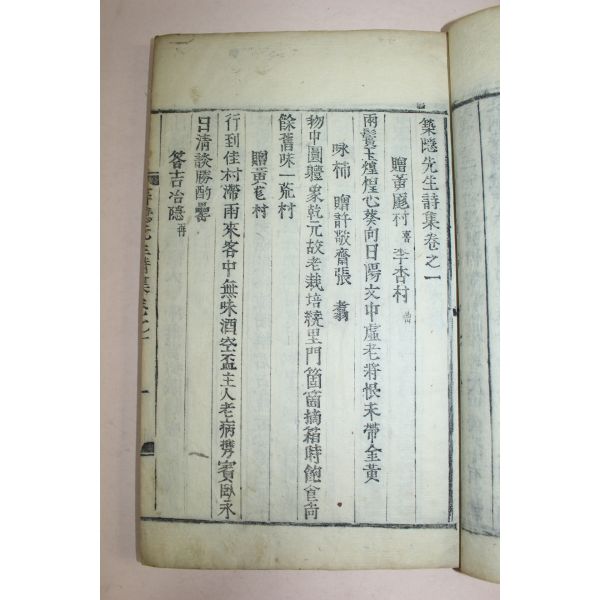 築隱先生詩集卷之一
贈黃厖村喜李杏村
兩鬢玉煌煌心葵向日陽文中虛老將恨未帶金黃
咏柿贈許敬齋張翥
物中圓體象乾元故老栽培統里門箇箇摘霜時飽食尚
餘舊味一荒村
贈黃厖村
行到佳村滯雨來客中無味酒空盃主人老病携賓臥永
日清談勝酌罍
答吉冶隱再